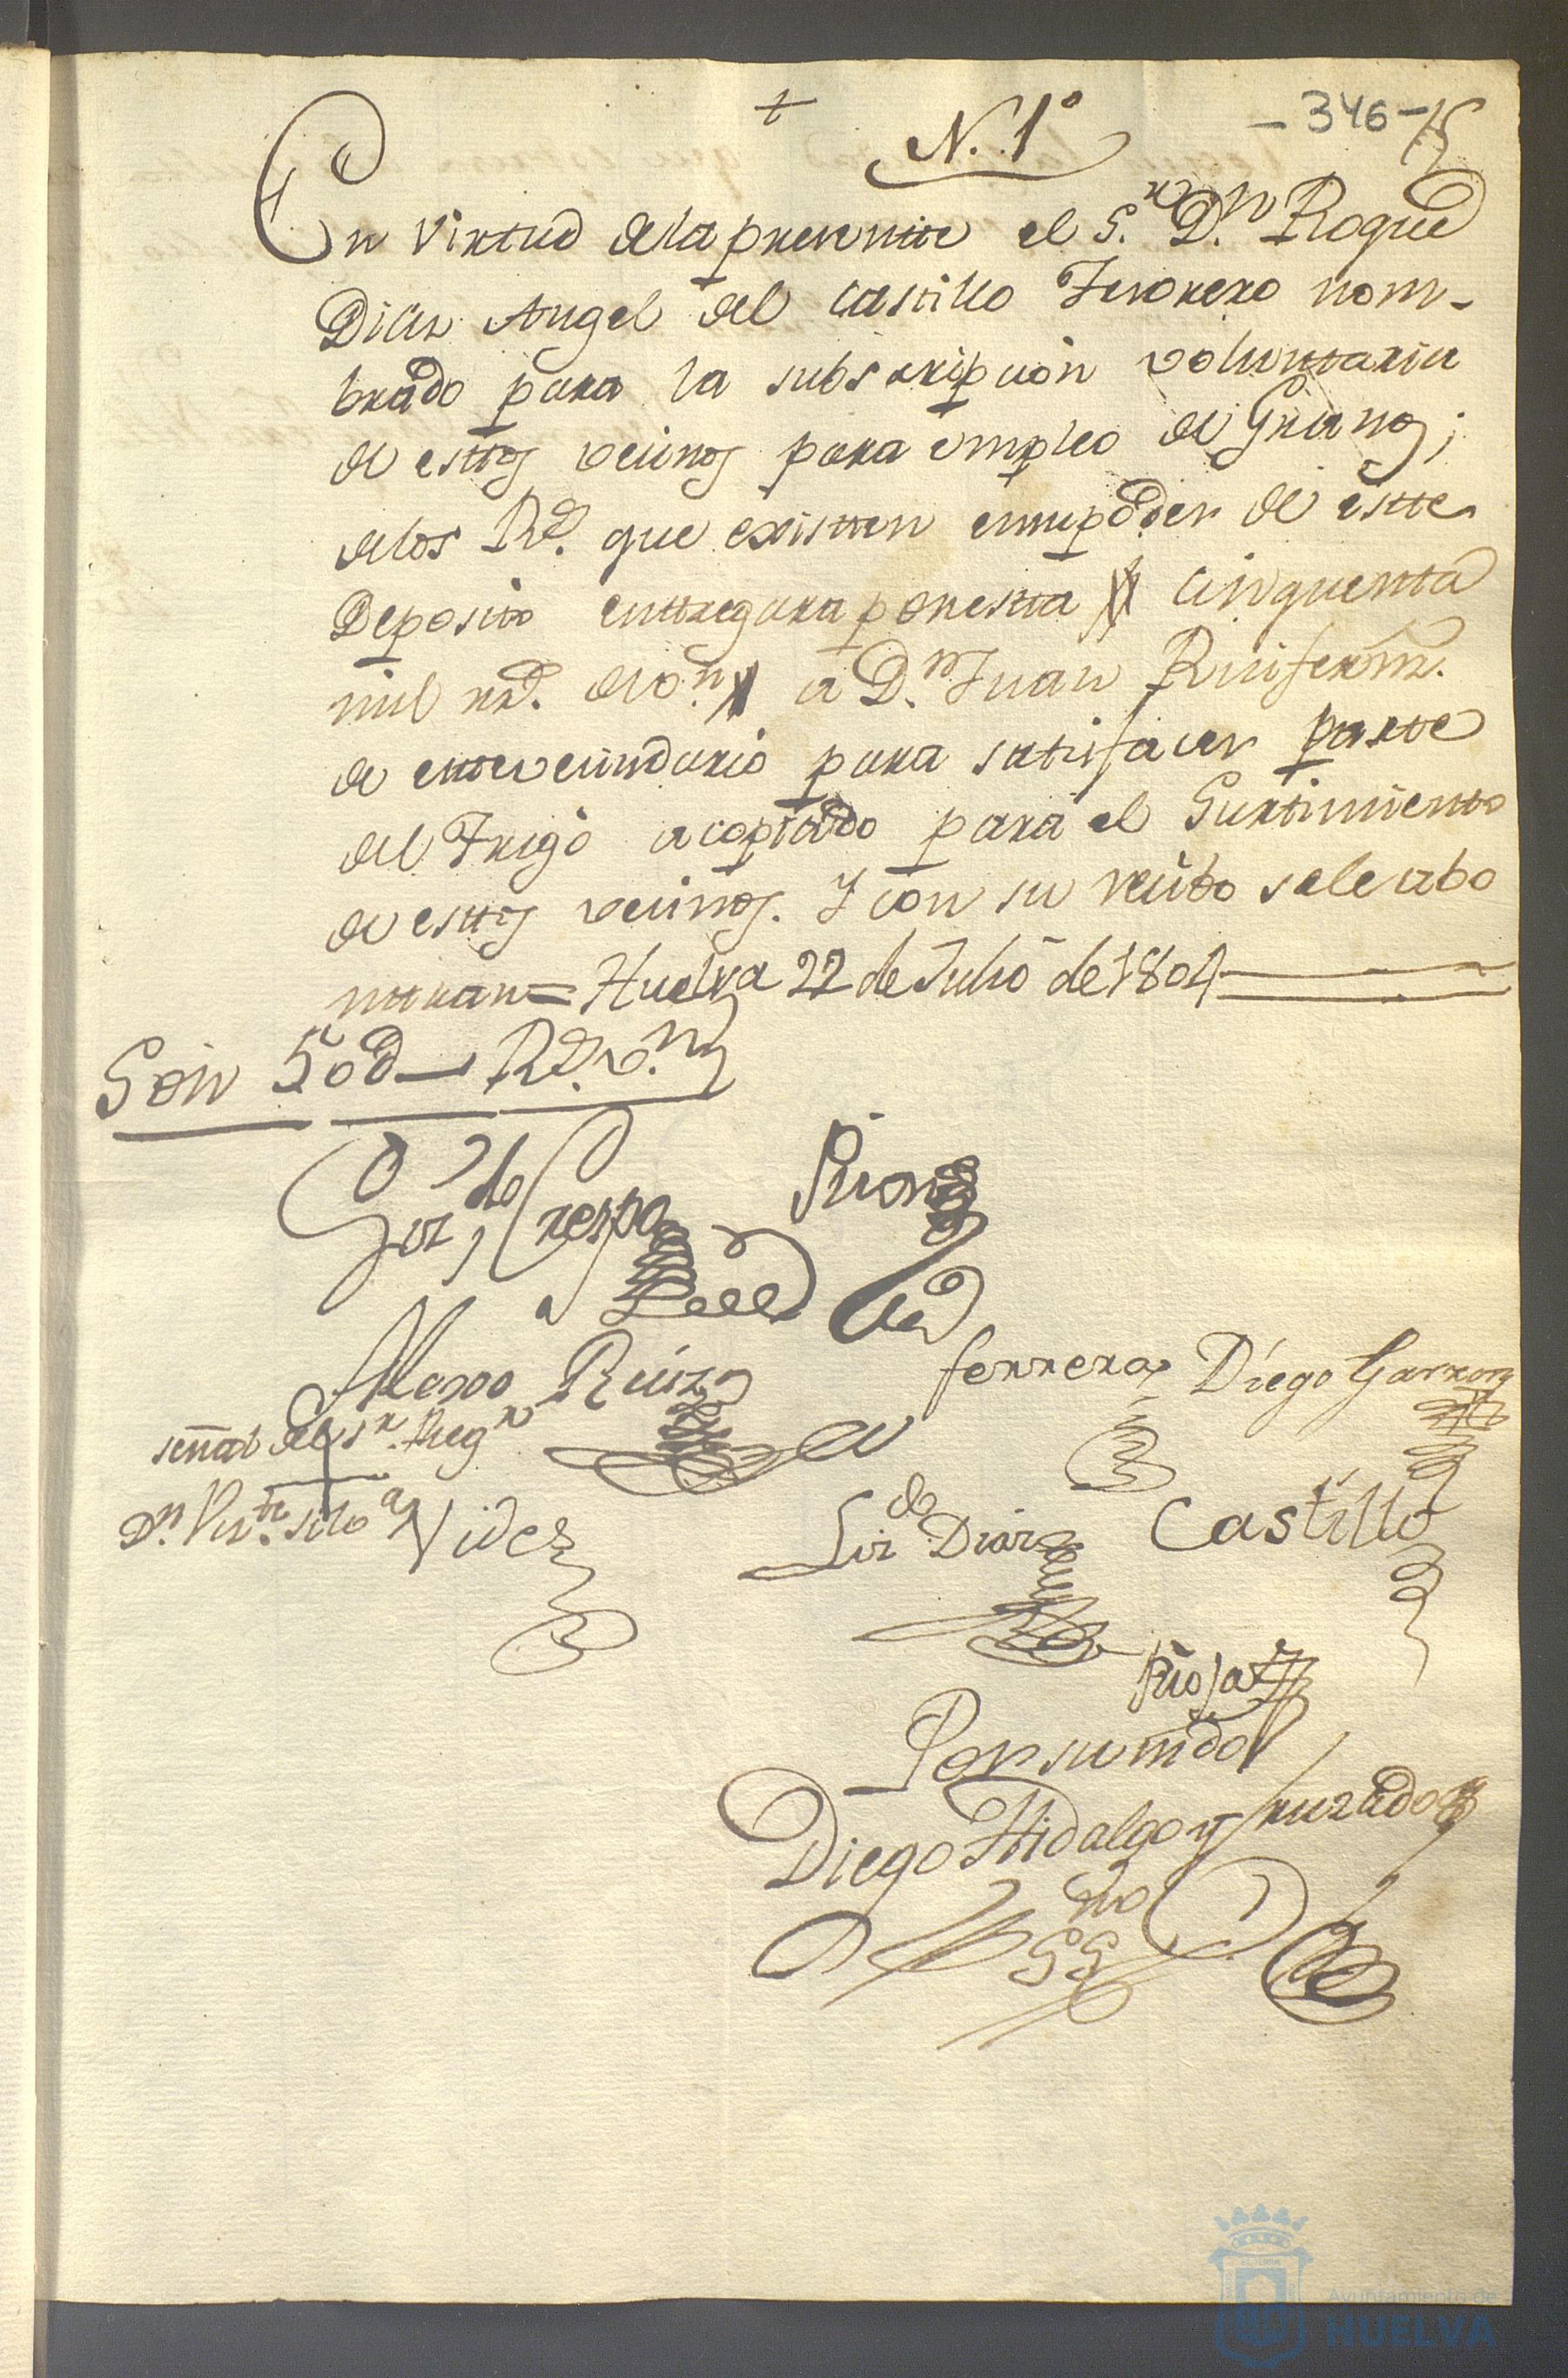 +
N. 1º
- 346 - 15
En virtud dela presente el S.r D.n Roque
Diaz Angel del Castillo Tesorero nom-
brado para la subscripcion voluntaria
de esttos vecinos para empleo de Granos;
delos R.s que existten ensupoder de estte
Deposito enttregara porestta cinquenta
mil rs. von. a D.n Juan Ruifernz.
de estte vecindario para satisfacer parte
del Trigo acopiado para el Surtimiento
de esttos vecinos. Y con su recibo sele abo
naran = Huelva 22 de Julio de 1804
Son 50d R.s v.n
Liz.do Crespo
Alonso Ruiz
ferrera Diego Garzon
señal del s.r Reg.r
D.n Viz.te
Liz.do Diaz Castillo
Por su mdo
Diego Hidalgo y Jurado